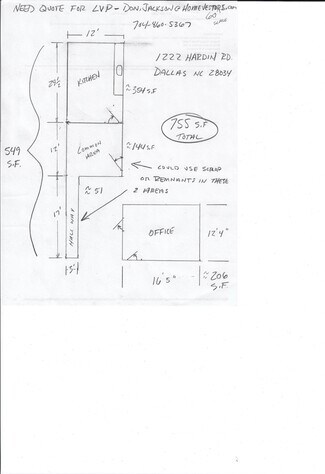 NEED QUOTE FOR LVP - DON.JACKSON@HOMEVESTORS.COM
704-460-5367
GO
12'
1222 HARDIN RD.
DALLAS NC 28034
29½
KITCHEN
≈354 S.F
755 S.F
TOTAL
549
S.F.
12'
COMMON
AREA
≈144 S.F
COULD USE SCRAP
OR REMNANTS IN THESE
2 AREAS
≈51
17'
HALL WAY
5'
OFFICE
12'4"
16'5"
≈206
S.F